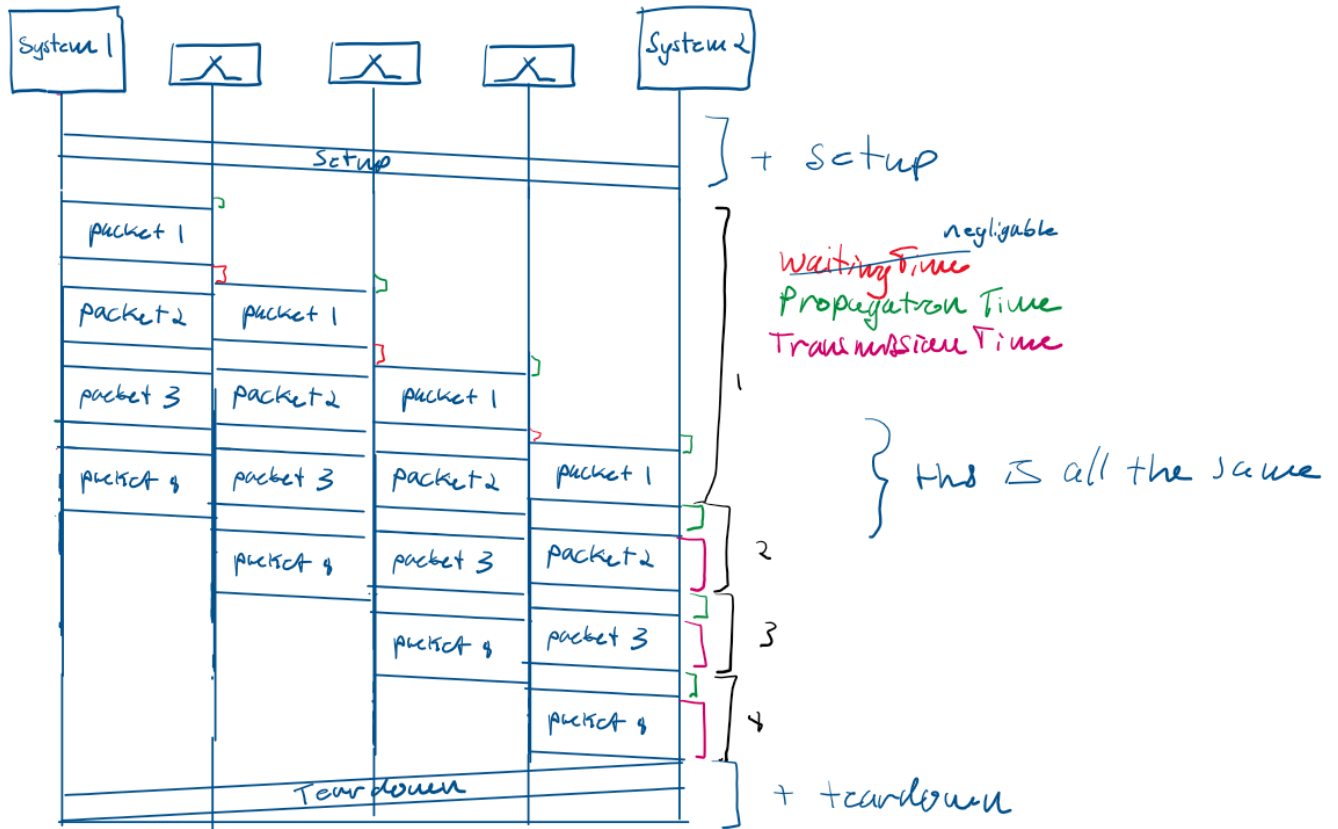 System 1
System 2
Setup
+ setup
packet 1
negligable
Waiting Time
Propagation Time
Transmission Time
packet 2 packet 1
1
packet 3 packet 2 packet 1
packet 4 packet 3 packet 2 packet 1
} this is all the same
packet 4 packet 3 packet 2
2
packet 4 packet 3
3
packet 4
4
Teardown
+ teardown